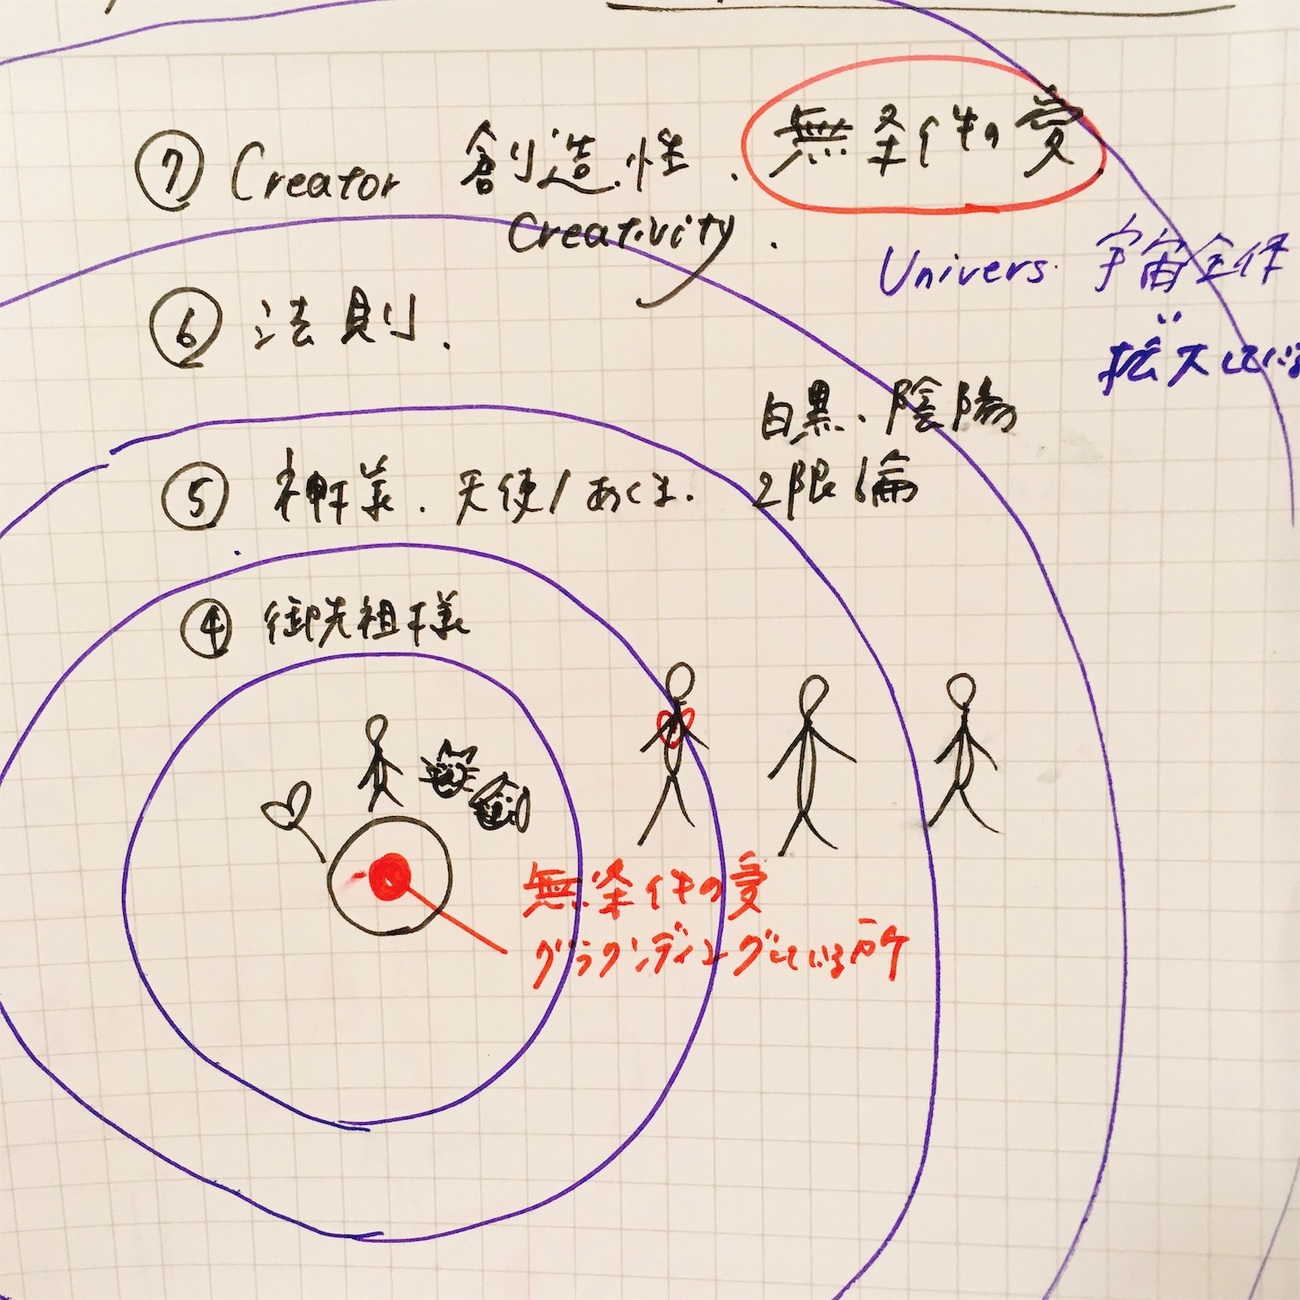 ⑦ Creator 創造性. 無条件の愛
Creativity.
Univers. 宇宙全体
拡大している
⑥ 法則.
白黒.陰陽
2限論
⑤ 神様. 天使/あくま.
④ 御先祖様
無条件の愛
グラウンディングしている所